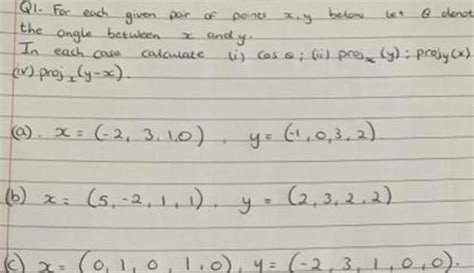 Q1. For each given pair of points x, y below let θ denot
the angle between x and y.
In each case calculate (i) cos θ ; (ii) proj_x(y) ; proj_y(x)
(iv) proj_x(y-x).
(a). x = (-2, 3, 1, 0) , y = (-1, 0, 3, 2).
(b) x = (5, -2, 1, 1) , y = (2, 3, 2, 2)
(c) x = (0, 1, 0, 1, 0), y = (-2, 3, 1, 0, 0).